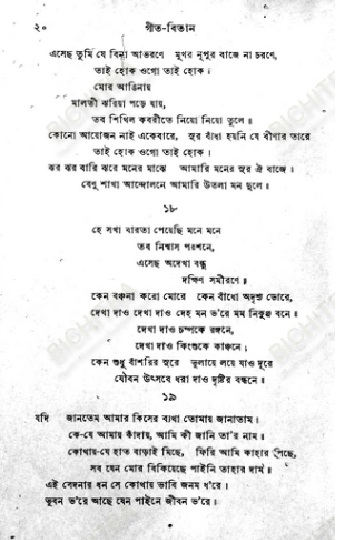 ২০ গীত-বিতান
এসেছ তুমি যে বিনা আভরণে মুখর নূপুর বাজে না চরণে,
তাই হোক ওগো তাই হোক।
মোর আঙিনায়
মালতী ঝরিয়া পড়ে যায়,
তব শিথিল কবরীতে নিয়ো নিয়ো তুলে॥
কোনো আয়োজন নাই একেবারে, সুর বাঁধা হয়নি যে বীণার তারে
তাই হোক ওগো তাই হোক।
ঝর ঝর বারি ঝরে মনের মাঝে আমারি মনের সুর ঐ বাজে।
বেণু শাখা আন্দোলনে আমারি উতলা মন দুলে॥
১৮
হে সখা বারতা পেয়েছি মনে মনে
তব নিশ্বাস পরশনে,
এসেছ অদেখা বন্ধু
দক্ষিণ সমীরণে॥
কেন বঞ্চনা করো মোরে কেন বাঁধো অদৃশ্য ডোরে,
দেখা দাও দেখা দাও দেহ মন ভ'রে মম নিকুঞ্জ বনে॥
দেখা দাও চম্পকে রঙ্গনে,
দেখা দাও কিংশুকে কাঞ্চনে;
কেন শুধু বাঁশরির সুরে ভুলায়ে লয়ে যাও দূরে
যৌবন উৎসবে ধরা দাও দৃষ্টির বন্ধনে॥
১৯
যদি জানতেম আমার কিসের ব্যথা তোমায় জানাতাম।
কে-যে আমায় কাঁদায়, আমি কী জানি তা'র নাম।
কোথায়-যে হাত বাড়াই মিছে, ফিরি আমি কাহার পিছে,
সব যেন মোর বিকিয়েছে পাইনি তাহার দাম॥
এই বেদনার ধন সে কোথায় ভাবি জনম ধ'রে।
ভুবন ভ'রে আছে যেন পাইনে জীবন ভ'রে।